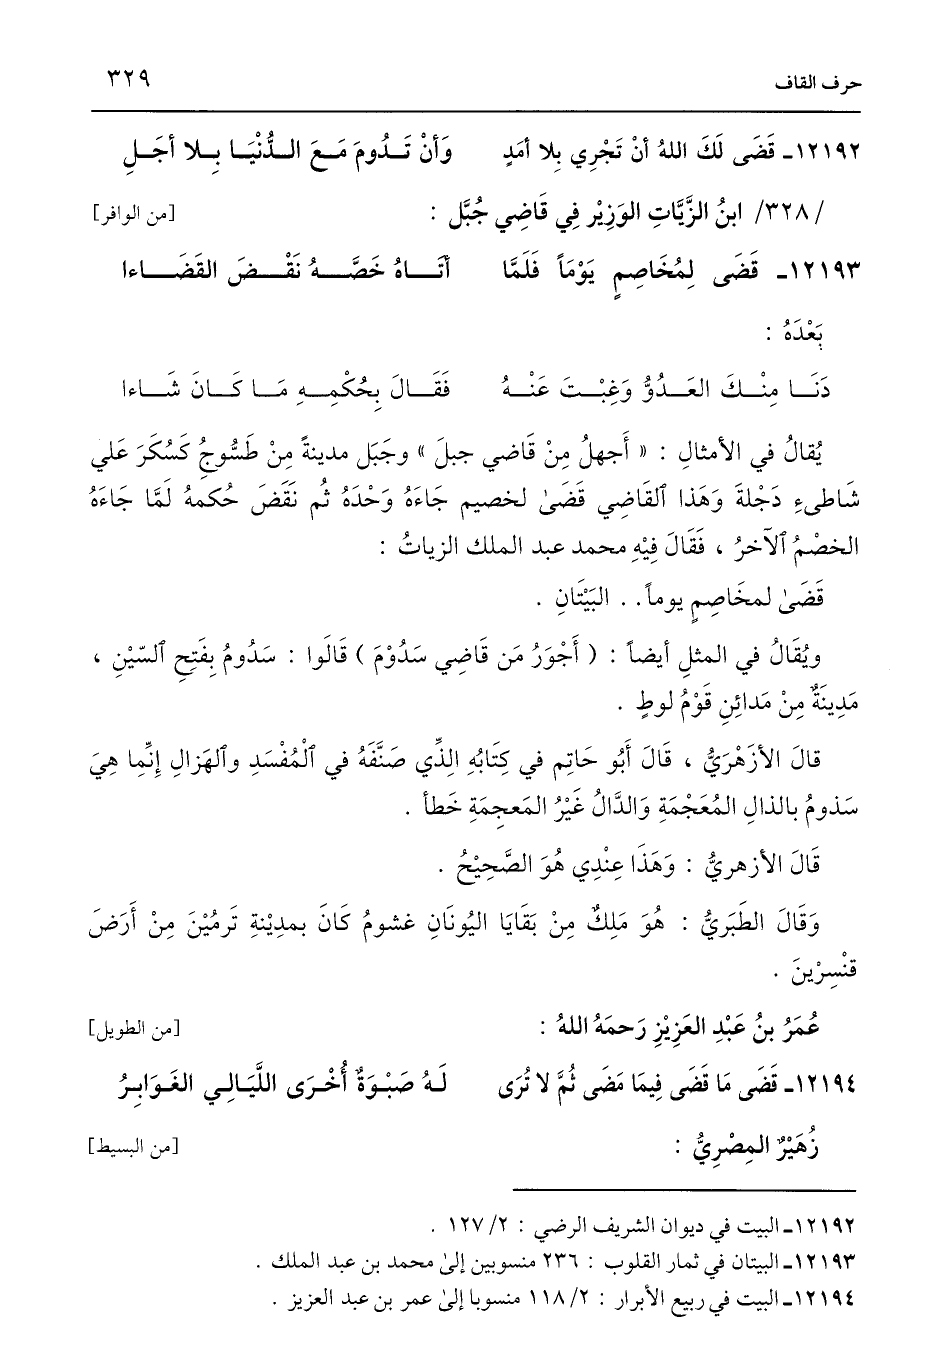 حرف القاف ٣٢٩
١٢١٩٢ـ قَضَى لَكَ اللهُ أنْ تَجْرِي بِلا أمَدٍ وَأنْ تَدُومَ مَعَ الدُّنْيَا بِلا أجَلِ
/٣٢٨/ ابنُ الزَّيَّاتِ الوَزِيْرِ فِي قَاضِي جُبَّل : [من الوافر]
١٢١٩٣ـ قَضَى لِمُخَاصِمٍ يَوْمَاً فَلَمَّا أتَاهُ خَصَّهُ نَقْضَ القَضَاءا
بَعْدَهُ :
دَنَا مِنْكَ العَدُوُّ وَغِبْتَ عَنْهُ فَقَالَ بِحُكْمِهِ مَا كَانَ شَاءا
يُقالُ في الأمثالِ : « أَجهلُ مِنْ قَاضي جبلَ » وجَبَل مدينةً مِنْ طَسُّوجِ كَسُكَرَ عَلي
شَاطىءِ دَجْلةَ وَهَذا ٱلقَاضِي قَضَىٰ لخصيم جَاءَهُ وَحْدَهُ ثُم نَقَضَ حُكمهُ لَمَّا جَاءَهُ
الخصْمُ ٱلآخرُ ، فَقَالَ فِيْهِ محمد عبد الملك الزياتُ :
قَضَىٰ لمخَاصِمٍ يوماً. . البَيْتَانِ .
ويُقَالُ في المثلِ أيضاً : ( أَجْوَرُ مَن قَاضِي سَدُوْمَ ) قَالُوا : سَدُومُ بِفَتحِ ٱلسّيْنِ ،
مَدِينَةٌ مِنْ مَدائنِ قَوْمُ لوطٍ .
قالَ الأزَهْرَيُّ ، قَالَ أَبُو حَاتِم في كِتَابُهِ الِذِّي صَنَّفَهُ في ٱلْمُفْسَدِ وٱلهَزالِ إنِّما هِيَ
سَذومُ بالذالِ المُعَجْمَةِ وَالدَّالُ غَيْرُ المَعجِمَةِ خَطأ .
قَالَ الأزهريُّ : وَهَذَا عِنْدِي هُوَ الصَّحِيْحُ .
وَقَالَ الطَبَريُّ : هُوَ مَلِكٌ مِنْ بَقَايَا اليُونَانِ غشومُ كَانَ بمدِيْنةِ تَرمُيْنَ مِنْ أَرَضَ
قنْسِرْينَ .
عُمَرُ بنُ عَبْدِ العَزِيْزِ رَحمَهُ اللهُ : [من الطويل]
١٢١٩٤ـ قَضَى مَا قَضَى فِيمَا مَضَى ثُمَّ لا تُرَى لَهُ صَبْوَةٌ أُخْرَى اللَّيَالِي الغَوَابِرُ
زُهَيْرُ المِصْرِيُّ : [من البسيط]
١٢١٩٢ـ البيت في ديوان الشريف الرضي : ١٢٧/٢ .
١٢١٩٣ـ البيتان في ثمار القلوب : ٢٣٦ منسوبين إلىٰ محمد بن عبد الملك .
١٢١٩٤ـ البيت في ربيع الأبرار : ١١٨/٢ منسوبا إلىٰ عمر بن عبد العزيز .